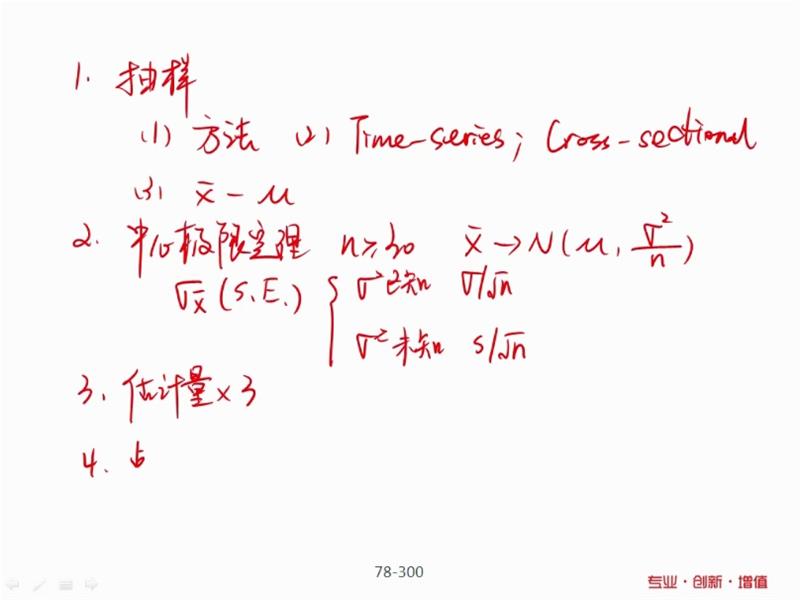 1. 抽样
(1) 方法 (2) Time-series; Cross-sectional
(3) x̄ - μ
2. 中心极限定理 n≥30 x̄→N(μ, σ²/n)
σx̄ (S.E.) { σ²已知 σ/√n
σ²未知 s/√n
3. 估计量×3
4.
78-300
专业·创新·增值